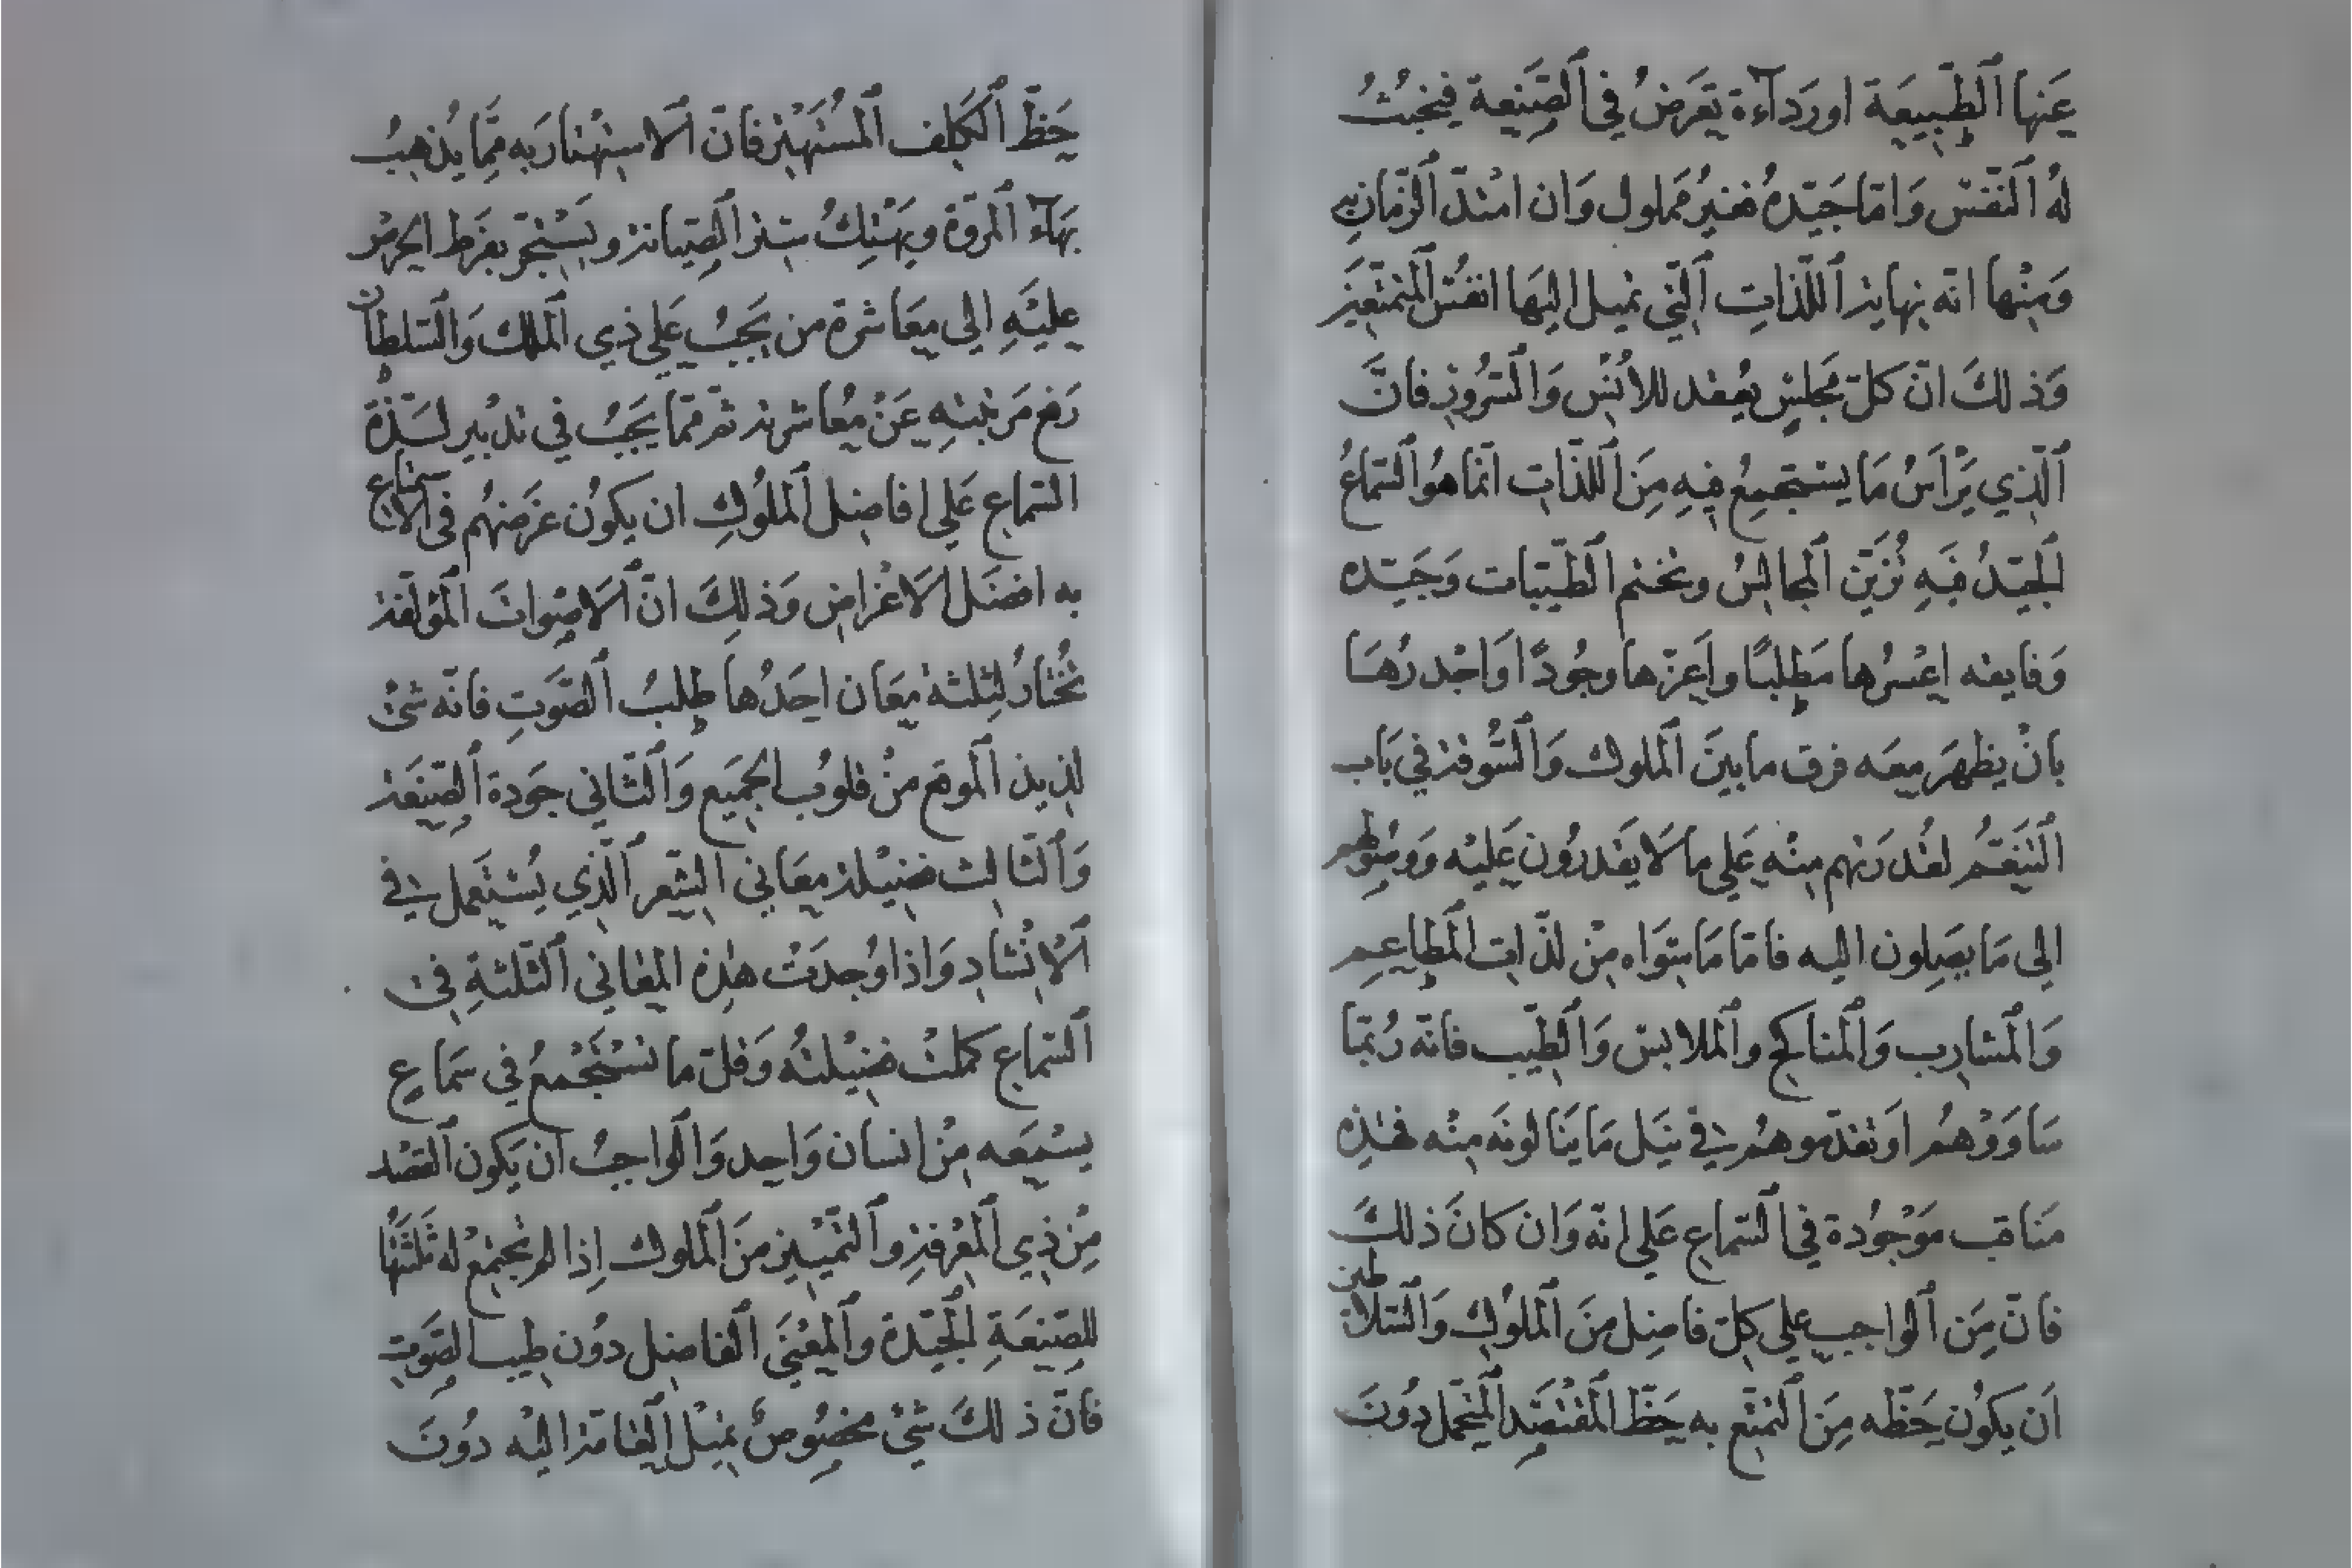 عَنها ٱلطَّبيعَة اورَدآءة تَعَرضُ فِي ٱلصَّنِعة فيخبُثُ
لهُ ٱلنّفسُ وَامّا جَيّدهُ فغيرُ مَملول وَان امتدّ ٱلزّمان بهِ
وَمِنْها انّه نِهاية ٱللّذاتِ ٱلّتِي تميل اليَها انفُس ٱلمتمتّعِينَ
وَذلكَ انّ كلّ مَجلسٍ يُعقد للأُنْسِ وَٱلسُّرُورِ فانَّ
ٱلّذِي يَرْأسُ مَا يستجمعُ فِيهِ مِنَ ٱللذّاتِ انّما هوُ ٱلسّماعُ
ٱلجيّدُ فبِهِ تُزَيّن ٱلمجالسُ وتختم ٱلطّيّبات وَجَيّده
وَفايقه اعْسرُها مَطلبًا وَاَعزّها وجُودًا وَاجْدرُهَا
بانْ يظهَرَ مَعَه فرق ما بينَ ٱلملوك وَٱلسُّوقة في بَاب
ٱلتّنَعّم لقُدرَتهم مِنْهِ عَلي ما لا يقدرُون عَليْه وَوصُولهم
الي مَا يصِلون اليه فامّا مَا سِوَاه مِنْ لذّات ٱلمطاعم
وَٱلمشارب وَٱلمناكح وٱلملابس وَٱلطّيب فانّه رُبّما
سَاوَوْهمُ اَو تقدّموهمُ في نَيل مَا يَنالونَه مِنْه فهٰذِه
مَناقب مَوْجُودة في ٱلسّماع عَلي انّه وَان كانَ ذلكَ
فانّ مِنَ ٱلواجب علي كلّ فاضِل مِنَ ٱلملُوك وَٱلسّلاطين
اَن يكوُن حَظّه مِنَ ٱلتمتّع به حَظّ ٱلمقتصِد ٱلمتجمل دُونَ
حَظّ ٱلكَلِف ٱلمُسْتَهْتَر فانّ ٱلاسْتِهْتار به مِمّا يُذهبُ
بهَآء ٱلمروّة ويَهْتِكُ سِتر ٱلصِّيانة و بفَرط الحِرْص
عليْهِ الي مَعَاشرة من يَجبُ عَلي ذي ٱلملك وَٱلسّلطان
رَفع مَرتبتهِ عَنْ مُعاشرته ثمّ ممّا يَجبُ في تدْبير لَذّة
السّماع عَلي افاضِل ٱلملُوكِ ان يكوُن غرَضهُم في ٱلاسْتماع
به افضَل ٱلاَغراض وَذلِكَ انّ ٱلاَصْواتَ ٱلمؤلّفة
تُختارُ لِثلثة مَعَان احَدُها طِيبُ ٱلصَّوَتِ فانّه شئ
لذيذ ٱلموقع مِنْ قلوبُ الجَمَيع وَٱلثّاني جَودة ٱلصِّنعَة
وَٱلثّالث فضيْلة مَعَاني ٱلشّعر ٱلّذِي يُسْتَعمل في
ٱلاِنْشادِ وَاذا وُجدَتْ هٰذِه المعاني ٱلثّلثةِ فِي
ٱلسّماع كمَلتْ فضيْلتُه وَقلّ ما تسْتَجْمعُ في سَماعٍ
يسْمَعَه مِنْ انسان وَاحِد وَٱلواجبُ اَن يَكون ٱلقصْد
مِنْ ذِي ٱلمعْرِفةِ وٱلتّمْييز مِنَ ٱلملوك اِذا لم تجتمعْ له ثلثتُها
للصِّنِعَةِ ٱلجيّدة وٱلمعْنَي ٱلفاضِل دوُن طِيب ٱلصّوتِ
فانّ ذلكَ شئ مخصُوصٌ بمَيْل ٱلعامّة اليْه دوُنَ